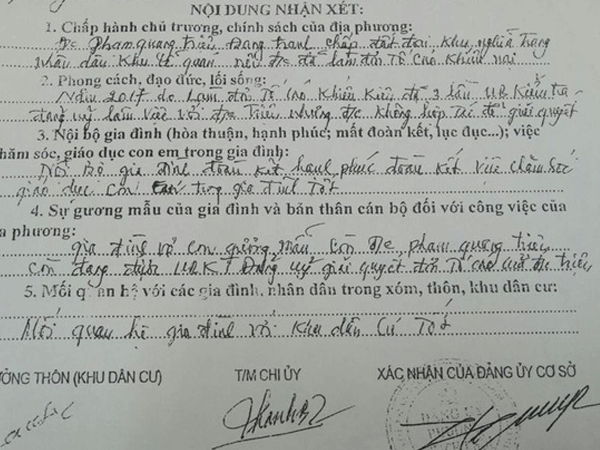 NỘI DUNG NHẬN XÉT:
1. Chấp hành chủ trương, chính sách của địa phương:
Đc Phạm quang Triều Đang tranh chấp đất đai khu nghĩa trang
nhân dân khu tê quan nên đc đã làm đơn Tố cáo khiếu nại
2. Phong cách, đạo đức, lối sống:
Năm 2017 do làm đơn Tố Cáo khiếu kiện đã 3 lần UB kiểm tra
đảng uỷ làm việc với đc Triều nhưng đc không hợp tác để giải quyết
3. Nội bộ gia đình (hòa thuận, hạnh phúc; mất đoàn kết, lục đục...); việc
hăm sóc, giáo dục con em trong gia đình:
Nội bộ gia đình đoàn kết hạnh phúc đoàn kết việc chăm sóc
giáo dục con trong gia đình Tốt
4. Sự gương mẫu của gia đình và bản thân cán bộ đối với công việc của
a phương:
gia đình vợ con gương mẫu Còn đc phạm quang triều
Còn đang được UBKT Đảng uỷ giải quyết đơn Tố cáo của đc triều
5. Mối quan hệ với các gia đình, nhân dân trong xóm, thôn, khu dân cư:
Mối quan hệ gia đình với khu dân cư Tốt
ƯỞNG THÔN (KHU DÂN CƯ) T/M CHI ỦY XÁC NHẬN CỦA ĐẢNG ỦY CƠ SỞ